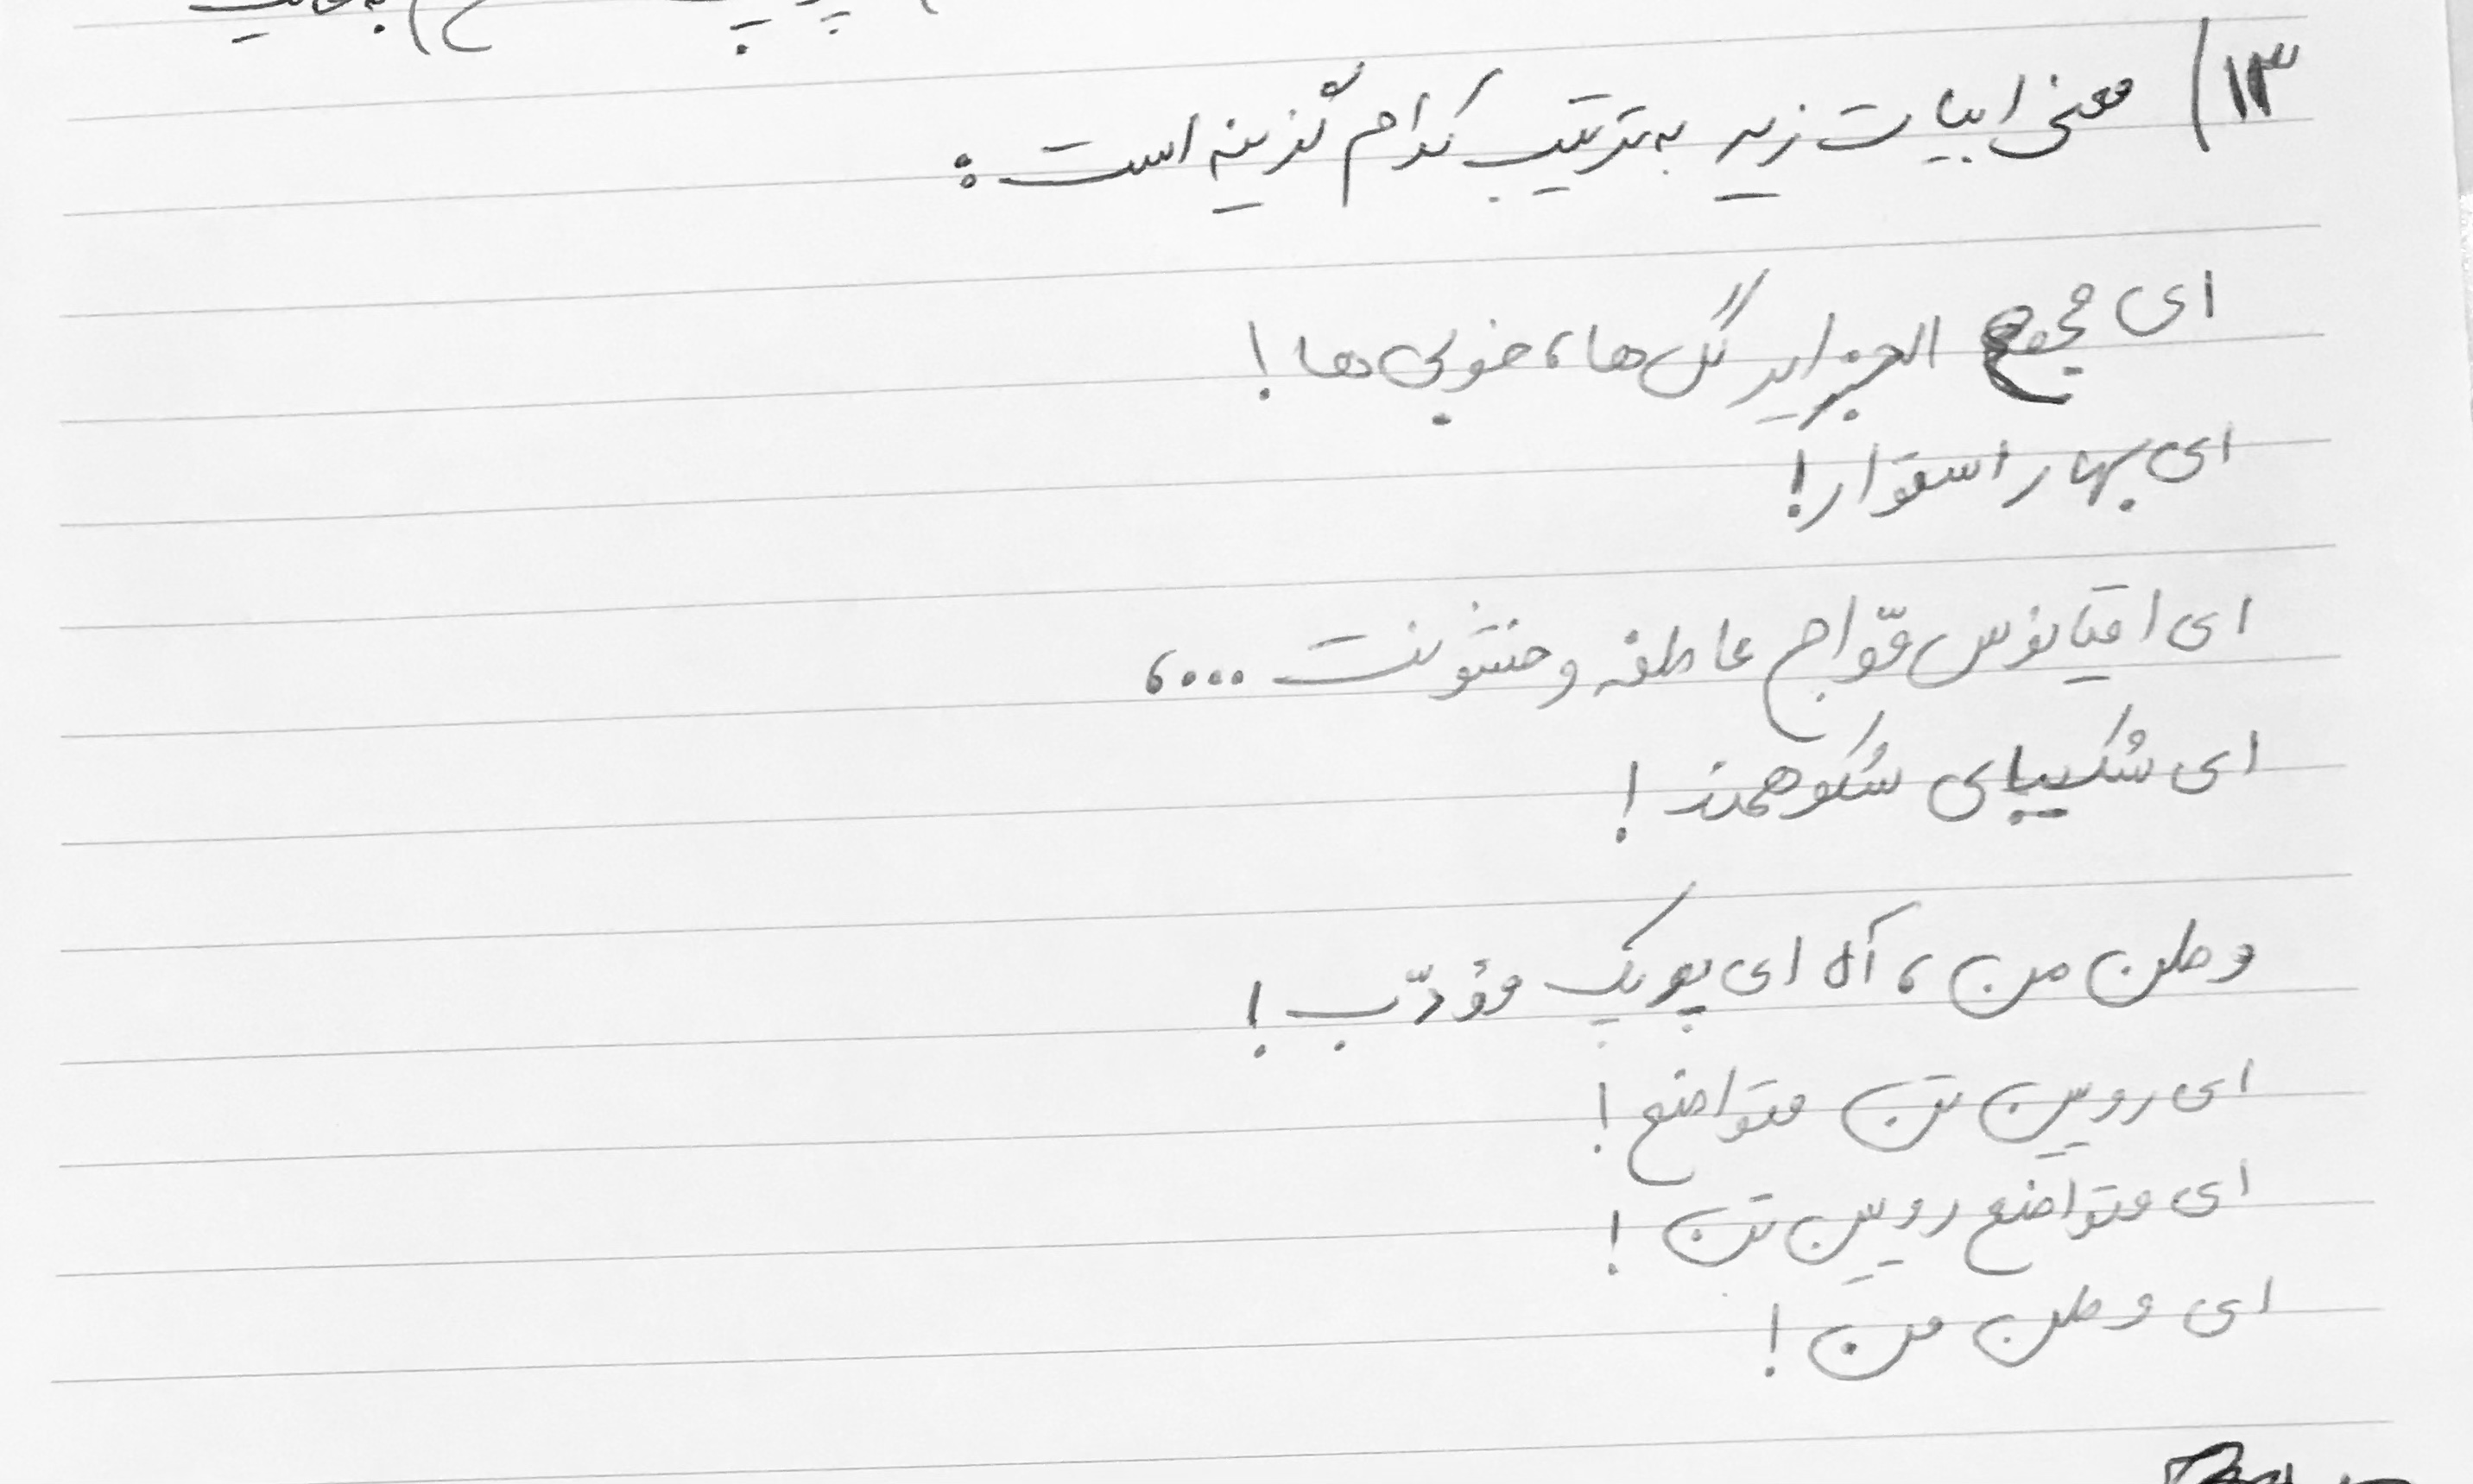 ۱۳) معنی ابیات زیر به ترتیب کدام گزینه است:
ای مجمع الجزایر گل‌ها، خوبی‌ها!
ای بهار استوار!
ای اقیانوس موّاج عاطفه و خشونت ....،
ای شکیبای شکوهمند!
وطن من، آه ای پوپک مؤدّب!
ای رویین تن متواضع!
ای متواضع رویین تن!
ای وطن من!